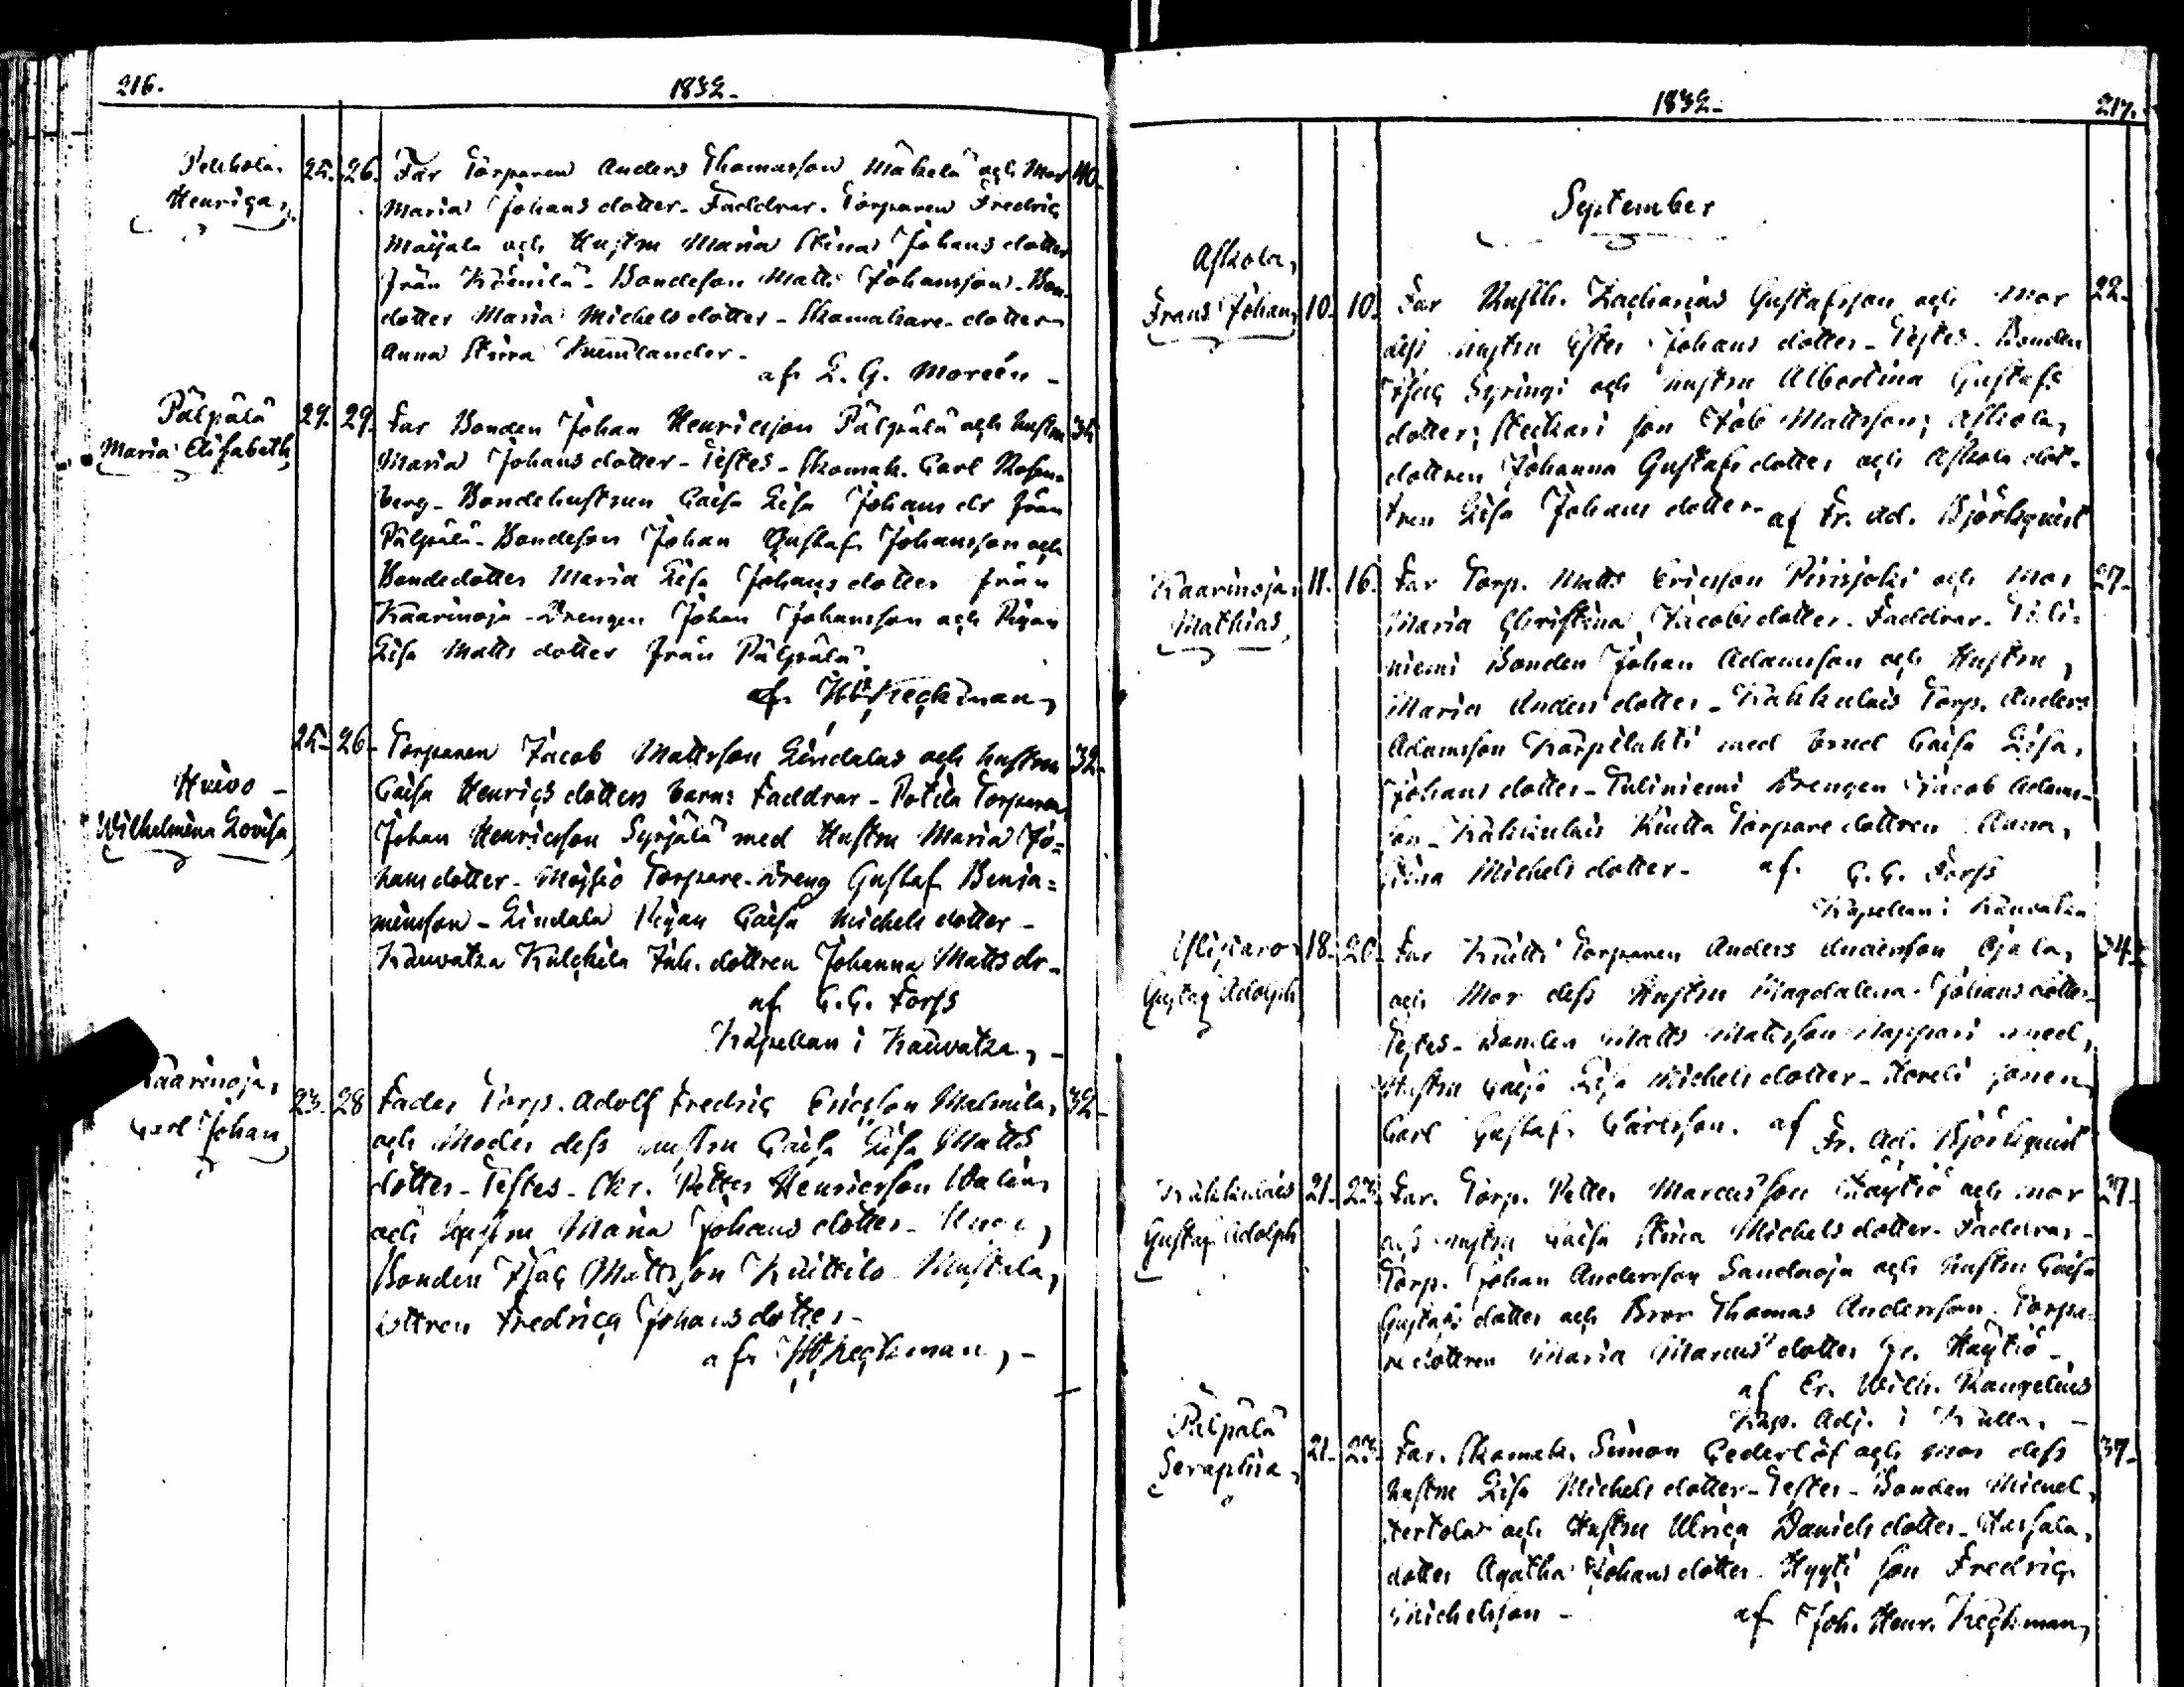 216.
1832.
Pekkola,
Henrica,
25. 26. Far Torparen Anders Thomasson Mäkelä och Mor 40.
Maria Johansdotter. Faddrar. Torparen Fredric
Maijala och Hustru Maria Stina Johansdotter
från Köenilä. Bondeson Matts Johansson. Bon-
dotter Maria Michelsdotter. Skomakare-dotter
Anna Stina
af L. G. Moréen
Pälpälä
Maria Elisabeth
29. 29. Far Bonden Johan Henricsson Pälpälä och hustru
Maria Johansdotter. Testes. Skomak. Carl Rosen-
berg. Bondehustrun Caisa Lisa Johans dr från
Pälpälä. Bondeson Johan Gustaf Johansson och
Bondedotter Maria Lisa Johansdotter från
Kaarinoja. Drengen Johan Johansson och Pigan
Lisa Mattsdotter från Pälpälä.
af Keckman,
Huivo
Wilhelmina Lovisa
25. 26. Torparen Jacob Mattsson Lindalas och hustru 32.
Caisa Henricsdotters barn: Faddrar. Potila Torparen
Johan Henricsson Syrjälä med Hustru Maria Jo-
hansdotter. Moisio Torpare-dreng Gustaf Benja-
minsson. Lindala Pigan Caisa Michelsdotter.
Kauvatza Kulckila Inh. dottren Johanna Mattsdr.
af G. G. Forss
Kapellan i Kauvatza,
Kaarinoja,
Carl Johan
23. 28 Fader Torp. Adolf Fredric Ericsson Malmila, 32.
och Moder dess hustru Caisa Lisa Matts
dotter. Testes. Skr. Petter Henricsson Walin,
och Hustru Maria Johansdotter.
Bonden Isac Mattsson Kuittilo. Mustala,
dottren Fredrica Johansdotter.
af Keckman,
1832.
217.
September
Askola,
Frans Johan,
10. 10. Far Rusth. Zacharias Gustafsson och Mor 22.
dess hustru Ester Johansdotter. Testes. Bonden
Isac Syringi och hustru Albertina Gustafs
dotter; son Job Mattsson; Askola,
dottren Johanna Gustafsdotter och Askola dot-
tren Lisa Johansdotter. af Fr. Ad. Björkquist
Kaarinoja,
Mathias,
11. 16. Far Torp. Matts Ericsson Piirijoki och Mor 27.
Maria Christina Jacobsdotter. Faddrar. Tuli-
niemi Bonden Johan Adamsson och Hustru,
Maria Andersdotter. Kukkulais Torp. Anders
Adamsson Karpilahti med brud Caisa Lisa,
Johansdotter. Tuliniemi Drengen Jacob Adams-
son. Kukkulais Torparedottren Anna,
Stina Michelsdotter. af. G. G. Forss
Kapellan i Kauvatza
Ylistaro
Gustaf Adolph
18. 20. Far Kuitti Torparen Anders Andersson Ojala, 34.
och Mor dess Hustru Magdalena Johansdotter.
Testes. Bonden Matts Mattsson Nappari med,
Hustru Caisa Lisa Michelsdotter. sonen
Carl Gustaf Carlsson. af Fr. Ad. Björkquist
Kukkulais
Gustaf Adolph
21. 23. Far. Torp. Petter Marcusson Käytiö och Mor 27.
dess hustru Caisa Stina Michelsdotter. Faddrar.
Torp. Johan Andersson Sandnoja och hustru Caisa
Gustafsdotter och Bror Thomas Andersson. Torpa-
redottren Maria Marcusdotter Käytiö.
af Er. Wilh. Rangelius
Kap. Adj. i Kulla,
Pälpälä
Seraphia,
21. 23. Far. Skomak. Simon Cederlöf och Mor dess 37.
hustru Lisa Michelsdotter. Testes. Bonden Michel
Tertola och Hustru Ulrica Danielsdotter.
dotter Agatha Johansdotter. Hygti son Fredric
Michelsson. af Joh. Henr. Keckman,